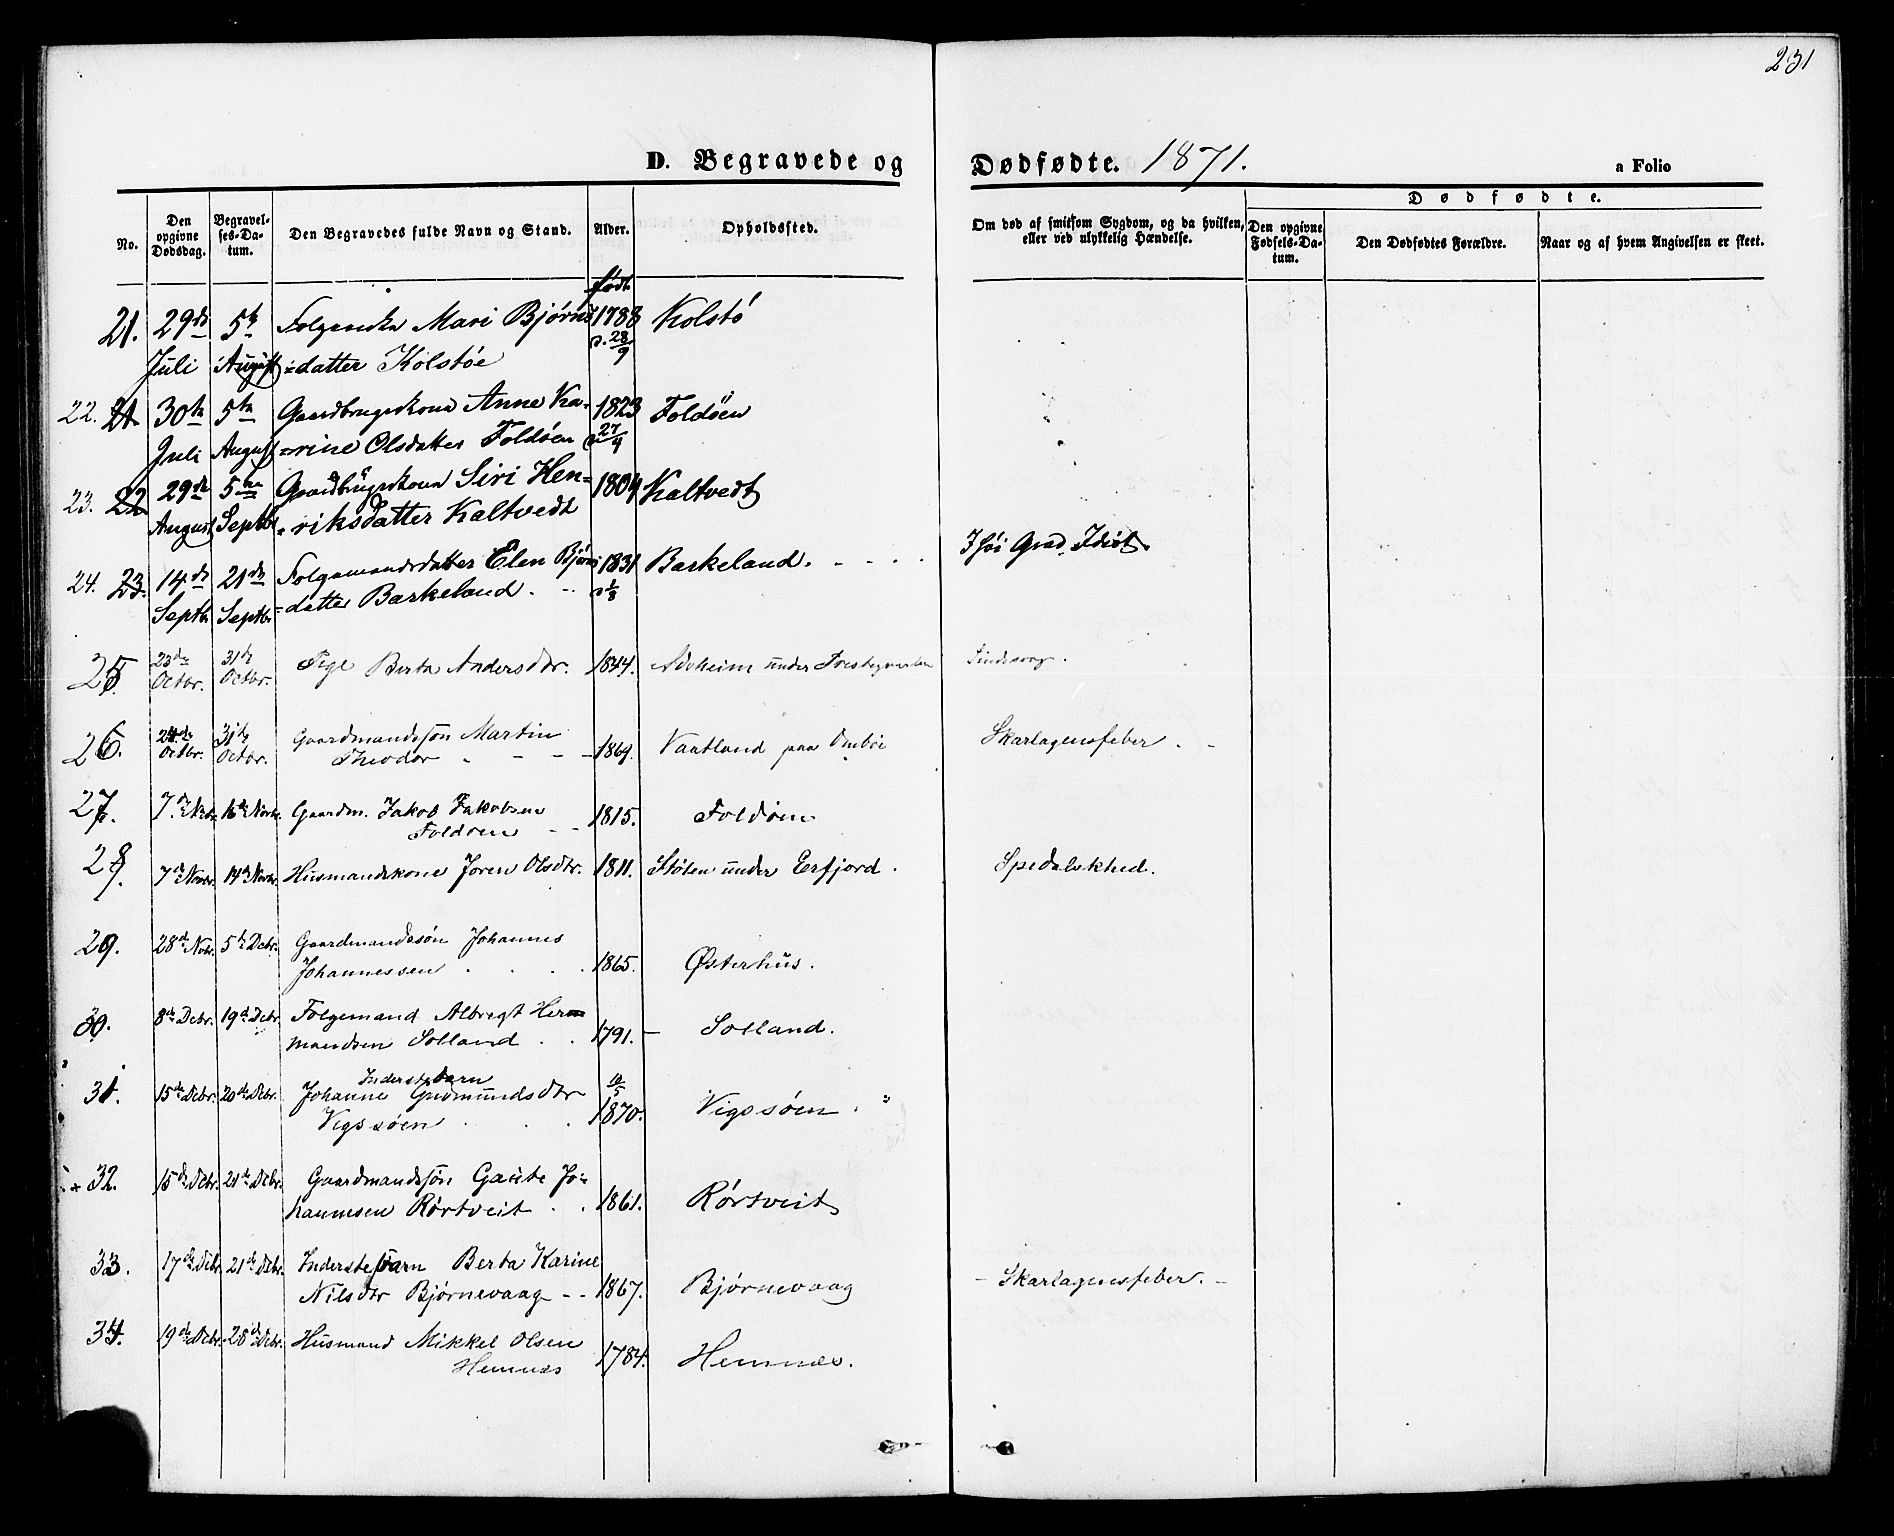 231
D. Begravede og Dødfødte. 1871. a Folio
No.
Den opgivne Dødsdag.
Begravel-ses-Da-tum.
Den Begravedes fulde Navn og Stand.
Alder.
Opholdssted.
Om død af smitsom Sygdom, og da hvilken, eller ved ulykkelig Hændelse.
Dødfødte.
Den opgivne Fødsels-Da-tum.
Den Dødfødtes Forældre.
Naar og af hvem Angivelsen er skeet.
født
21. 29de 5te Mari Bjørns 1788 Kolstö
Juli August =datter Kolstøe 28/9
22. 21 30te 5te Gaardbrugerkone Anne Ka- 1823 Foldöen
Juli August =rine Olsdatter Foldöen 27/9
23. 22 29de 5te Gaardbrugerkone Siri Hen= 1804 Kaltvedt
August Septbr =riksdatter Kaltvedt
24. 23. 14de 21de Folgemandsdatter Elen Bjørns 1831 Barkeland. I höi Grad Idiot.
Septbr Septbr =datter Barkeland. 1/8
25. 23de Octbr. 31te Octbr. Pige Berta Andersdtr. 1844. under
26. Octbr. 31te Octbr. Gaardmandssøn Martin
Theodor 1869. Vaatland paa Omböe Skarlagensfeber.
27. 7de Novbr. 16de Novbr. Gaardm. Jakob Jakobsen
Foldöen 1815. Foldöen
28. 7de Novbr. 14de Novbr. Husmandskone Joren Olsdtr. 1811. Stölen under Erfjord. Spedalskhed.
29. 28de Novbr. 5te Debr. Gaardmandssøn Johannes
Johannessen 1865. Østerhus.
30. 8de Debr. 19de Debr. Folgemand Albregt Her=
mandsen Solland 1791. Solland.
31. 15de Debr. 20de Debr. Inderstebarn
Johanne Gudmundsdtr 10/5
Vigssöen 1870. Vigssöen
32. 15de Debr. 21de Debr. Gaardmandssøn Gaute Jo-
hannesen Rørtveit 1861. Rørtveit
33. 17de Debr. 21de Debr. Inderstebarn Berta Karine
Nilsdtr Bjørnevaag 1867. Bjørnevaag Skarlagensfeber.
34. 19de Debr. 28de Debr. Husmand Mikkel Olsen
Hemnæs 1784. Hemnæs.